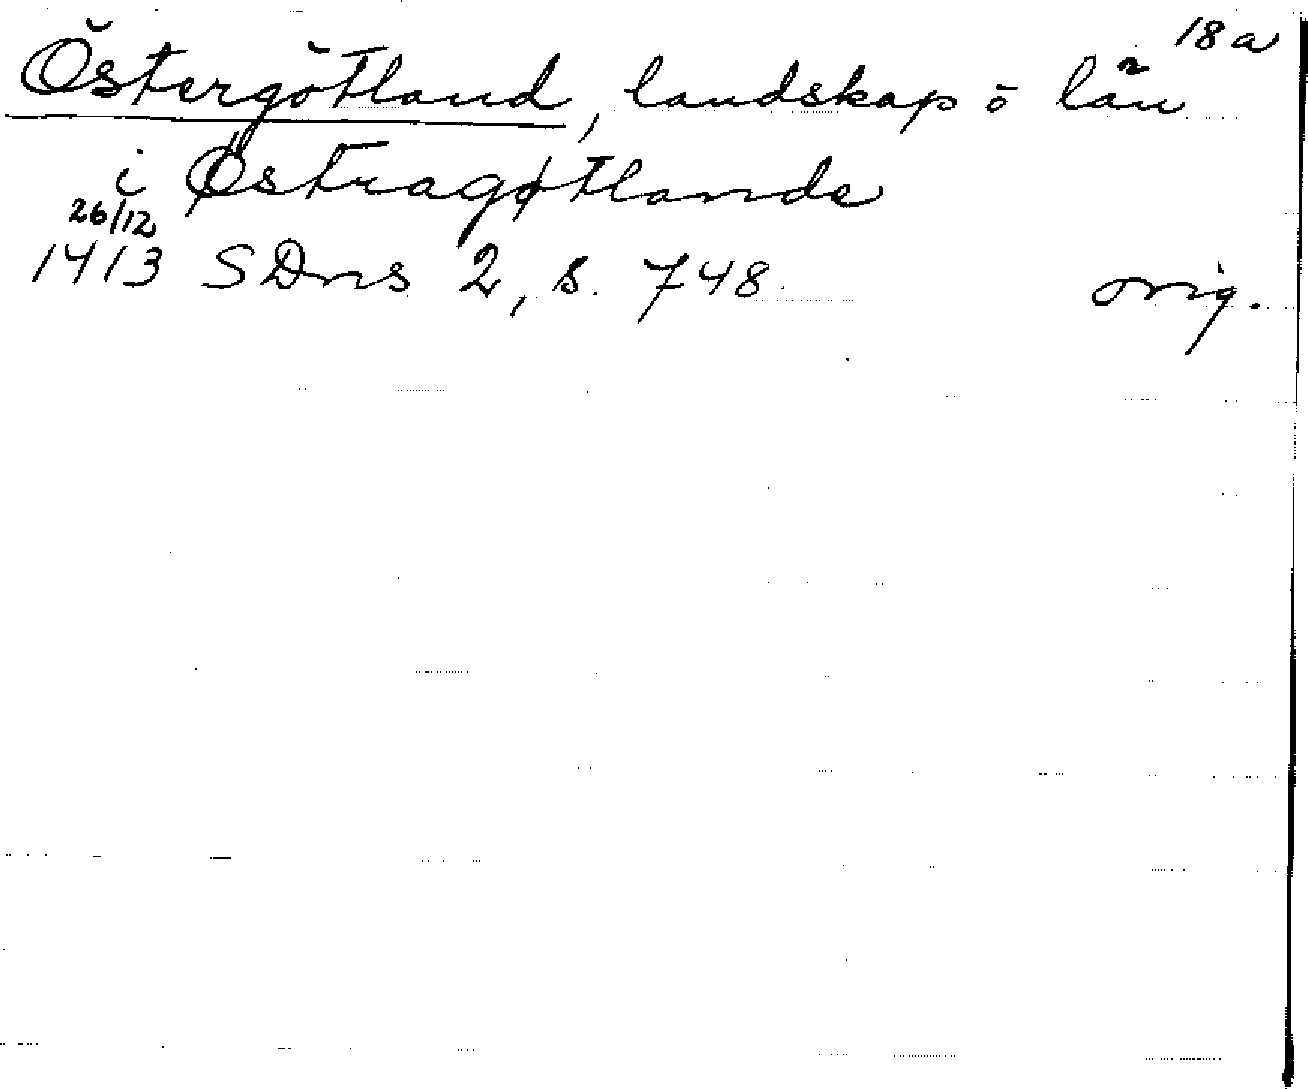 18 a
Östergötland, landskap o län
i Østragøtlande
26/12
1413 SDns 2, s. 748. orig.